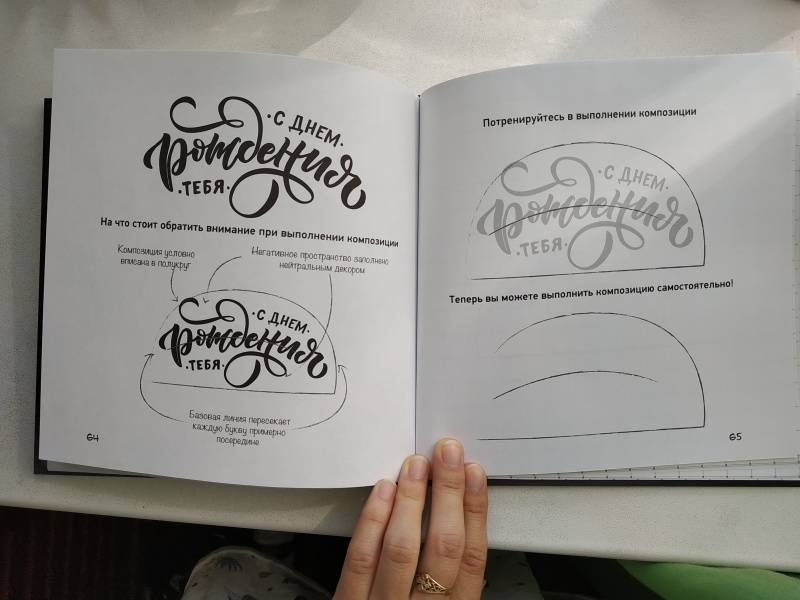 · С ДНЕМ ·
Рождения
· ТЕБЯ ·
На что стоит обратить внимание при выполнении композиции
Композиция условно
вписана в полукруг
Негативное пространство заполнено
нейтральным декором
· С ДНЕМ ·
Рождения
· ТЕБЯ ·
Базовая линия пересекает
каждую букву примерно
посередине.
64
Потренируйтесь в выполнении композиции
· С ДНЕМ ·
Рождения
· ТЕБЯ ·
Теперь вы можете выполнить композицию самостоятельно!
65